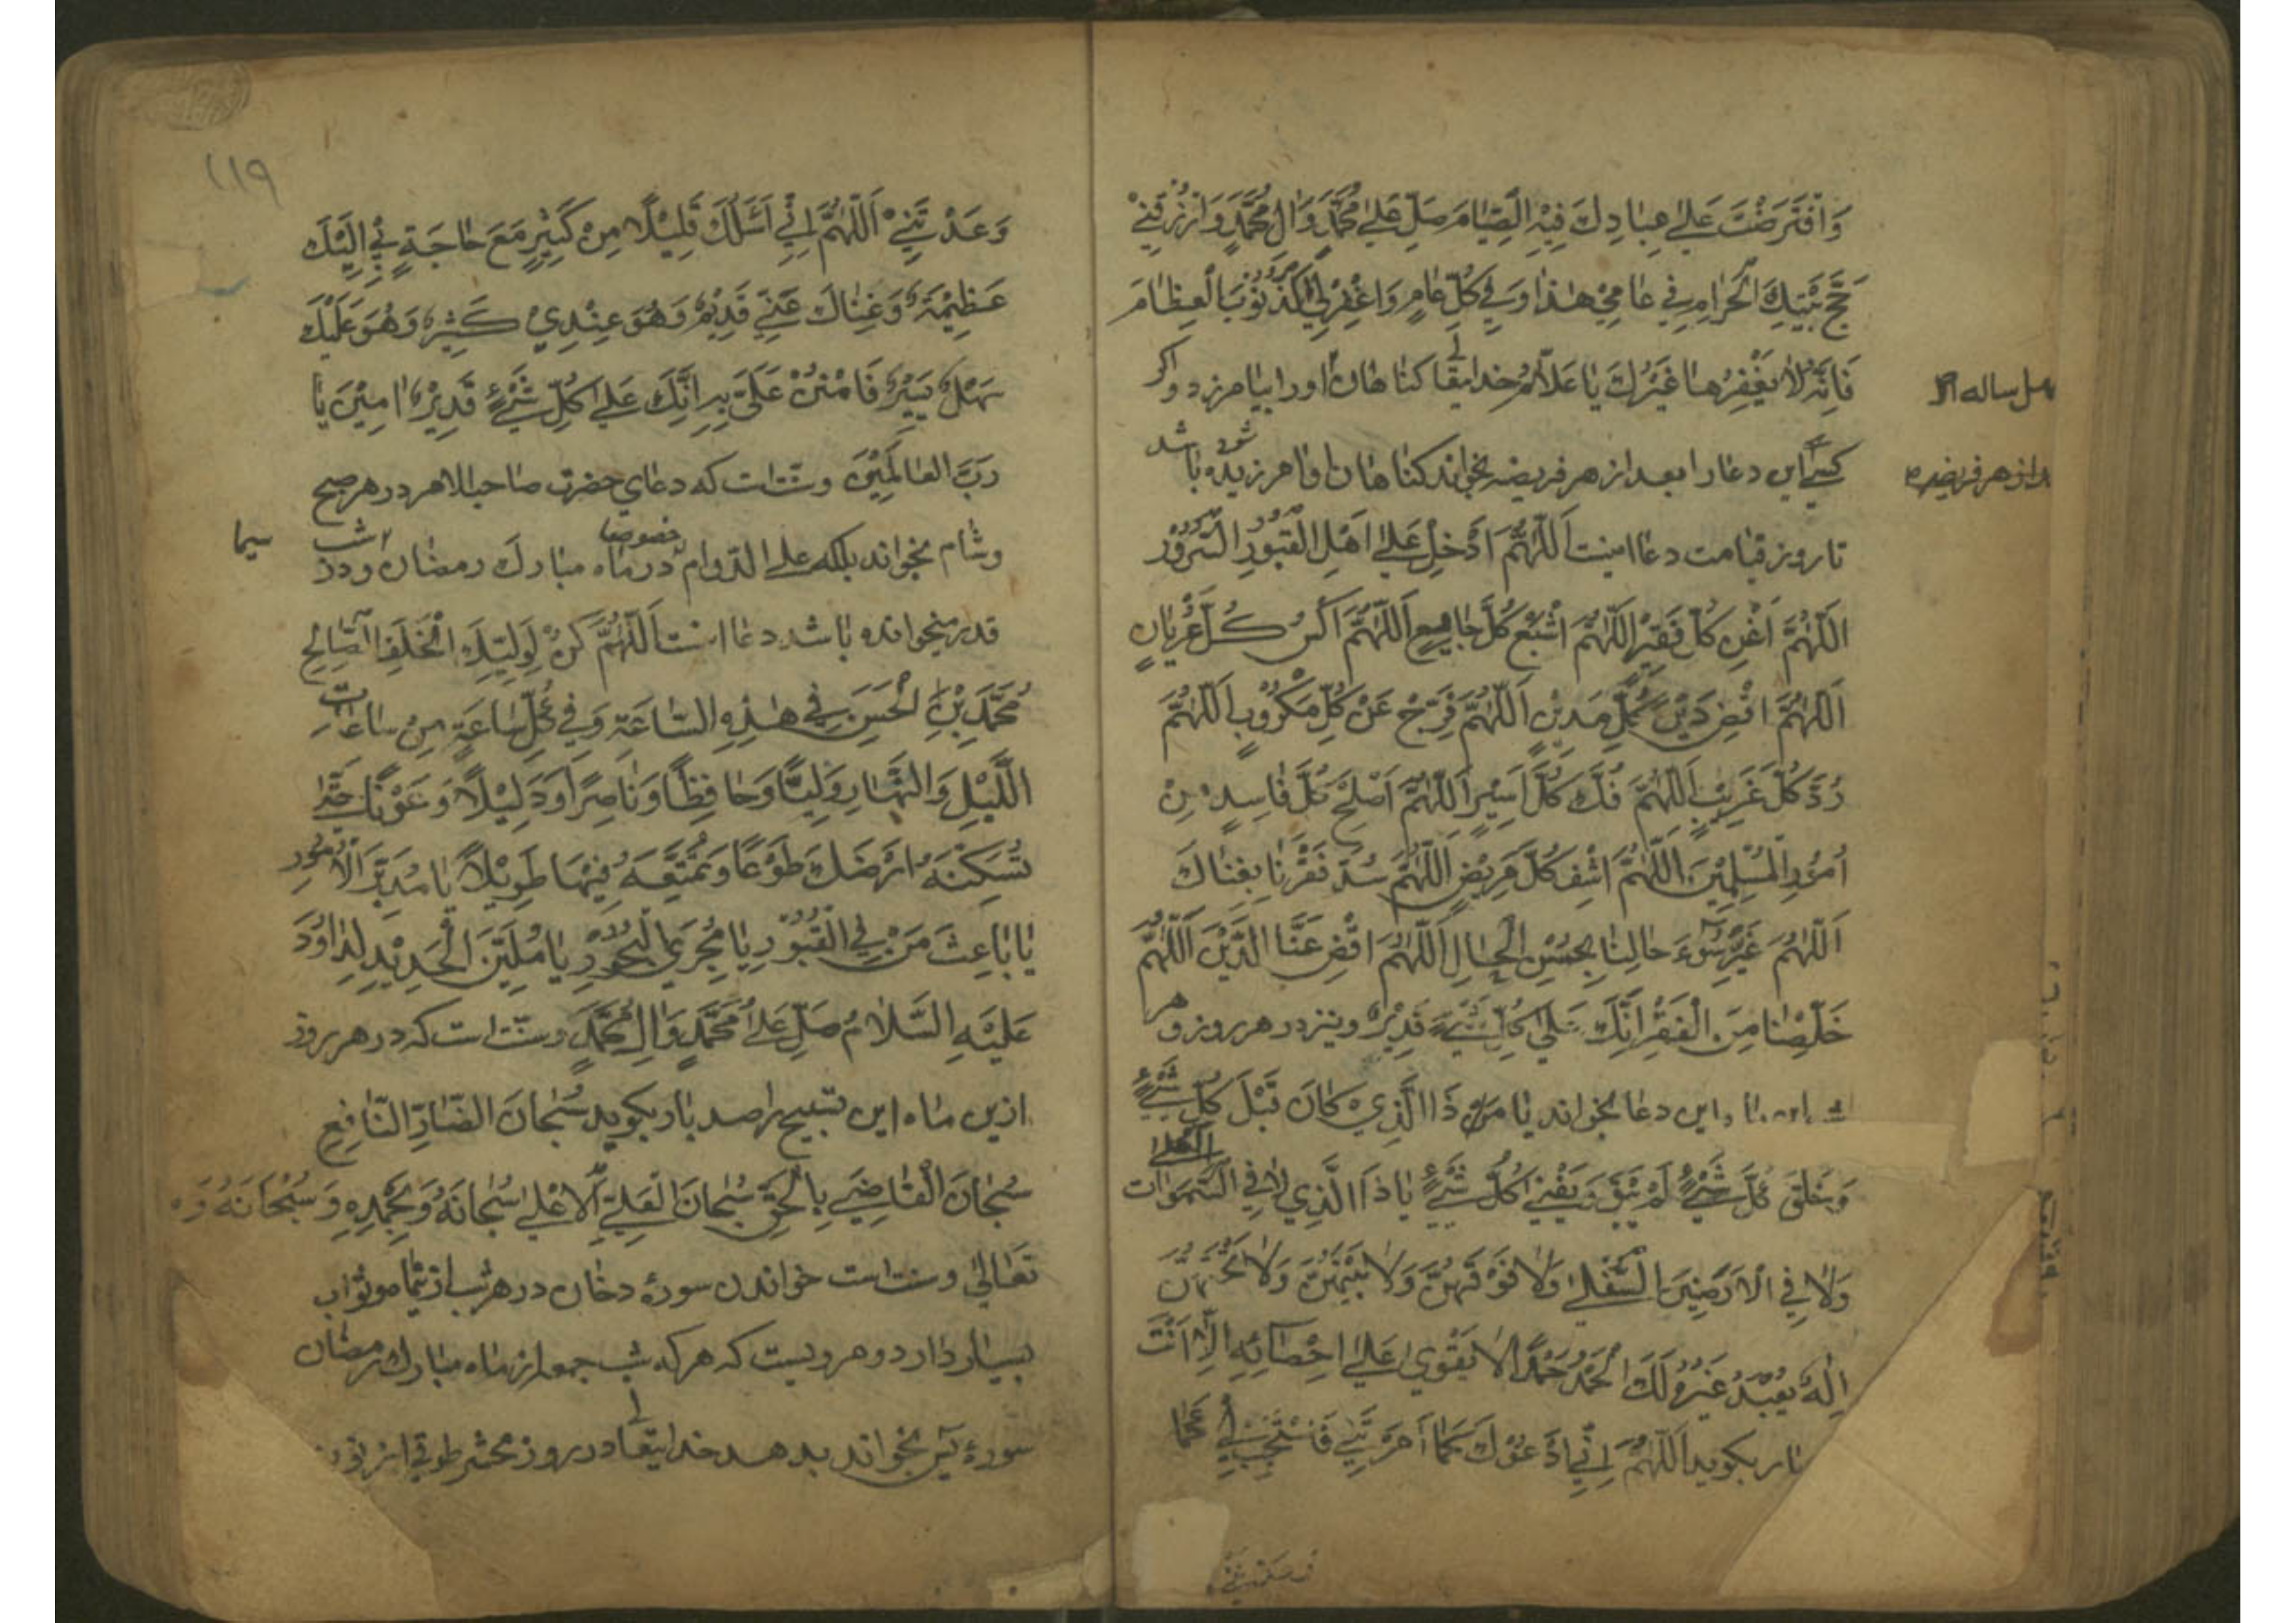 وَافْتَرَضْتَ عَلىٰ عِبَادِكَ فِيْهِ الصِّيَامَ صَلِّ عَلىٰ مُحَمَّدٍ وَاٰلِ مُحَمَّدٍ وَارْزُقْنِيْ
حَجَّ بَيْتِكَ الْحَرَامِ فِي عَامِيْ هٰذَا وَفِي كُلِّ عَامٍ وَاغْفِرْلِي الذُّنُوْبَ الْعِظَامَ
فَاِنَّهُ لَا يَغْفِرُهَا غَيْرُكَ يَا عَلَّامُ خدايتعالى كناهان اورا بيامرزد واكر
كسى اين دعا را بعد از هر فريضه بخواند كناهان او امرزيده شود باشد
چهل ساله
بعد از هر فريضه
تا روز قيامت دعا اينست اَللّٰهُمَّ اَدْخِلْ عَلىٰ اَهْلِ الْقُبُوْرِ السُّرُوْرَ
اَللّٰهُمَّ اَغْنِ كُلَّ فَقِيْرٍ اَللّٰهُمَّ اَشْبِعْ كُلَّ جَايِعٍ اَللّٰهُمَّ اكْسُ كُلَّ عُرْيَانٍ
اَللّٰهُمَّ اقْضِ دَيْنَ كُلِّ مَدِيْنٍ اَللّٰهُمَّ فَرِّجْ عَنْ كُلِّ مَكْرُوْبٍ اَللّٰهُمَّ
رُدَّ كُلَّ غَرِيْبٍ اَللّٰهُمَّ فُكَّ كُلَّ اَسِيْرٍ اَللّٰهُمَّ اَصْلِحْ كُلَّ فَاسِدٍ مِنْ
اُمُوْرِ الْمُسْلِمِيْنَ اَللّٰهُمَّ اشْفِ كُلَّ مَرِيْضٍ اَللّٰهُمَّ سُدَّ فَقْرَنَا بِغِنَاكَ
اَللّٰهُمَّ غَيِّرْ سُوْءَ حَالِنَا بِحُسْنِ الْحَالِ اَللّٰهُمَّ اقْضِ عَنَّا الدَّيْنَ اَللّٰهُمَّ
خَلِّصْنَا مِنَ الْفَقْرِ اِنَّكَ عَلىٰ كُلِّ شَيْءٍ قَدِيْرٌ ونيز در هر روز و هر
اين دعا بخواند يَا مَنْ ذَا الَّذِيْ كَانَ قَبْلَ كُلِّ شَيْءٍ
وَخَلَقَ كُلَّ شَيْءٍ ثُمَّ يَبْقىٰ وَيَفْنىٰ كُلُّ شَيْءٍ يَا ذَا الَّذِي لَا فِي السَّمٰوَاتِ الْعُلىٰ
وَلَا فِي الْاَرَضِيْنَ السُّفْلىٰ وَلَا فَوْقَهُنَّ وَلَا بَيْنَهُنَّ وَلَا تَحْتَهُنَّ
اِلٰهٌ يُعْبَدُ غَيْرُهُ لَكَ الْحَمْدُ حَمْدًا لَا يَقْوىٰ عَلىٰ اِحْصَائِهِ اِلَّا اَنْتَ
بار بكويد اَللّٰهُمَّ اِنِّي اَدْعُوْكَ كَمَا اَمَرْتَنِي فَاسْتَجِبْ لِي كَمَا
١١٩
وَعَدْتَنِيْ اَللّٰهُمَّ اِنِّيْ اَسْئَلُكَ قَلِيْلًا مِنْ كَثِيْرٍ مَعَ حَاجَةٍ بِيْ اِلَيْكَ
عَظِيْمَةٌ وَغِنَاكَ عَنِّيْ قَدِيْمٌ وَهُوَ عِنْدِيْ كَثِيْرٌ وَهُوَ عَلَيْكَ
سَهْلٌ يَسِيْرٌ فَامْنُنْ عَلَيَّ بِهِ اِنَّكَ عَلىٰ كُلِّ شَيْءٍ قَدِيْرٌ اٰمِيْنَ يَا
رَبَّ الْعَالَمِيْنَ وسنت است كه دعاي حضرت صاحب الامر در هر صبح
وشام بخواند بلكه على الدوام خصوصا در ماه مبارك رمضان ودر شب سيما
قدر ميخوانده باشد دعا اينست اَللّٰهُمَّ كُنْ لِوَلِيِّكَ الْخَلَفِ الصَّالِحِ
مُحَمَّدِ بْنِ الْحَسَنِ فِي هٰذِهِ السَّاعَةِ وَفِي كُلِّ سَاعَةٍ مِنْ سَاعَاتِ
اللَّيْلِ وَالنَّهَارِ وَلِيًّا وَحَافِظًا وَنَاصِرًا وَدَلِيْلًا وَعَوْنًا حَتّىٰ
تُسْكِنَهُ اَرْضَكَ طَوْعًا وَتُمَتِّعَهُ فِيْهَا طَوِيْلًا يَا مُدَبِّرَ الْاُمُوْرِ
يَا بَاعِثَ مَنْ فِي الْقُبُوْرِ يَا مُجْرِيَ الْبُحُوْرِ يَا مُلَيِّنَ الْحَدِيْدِ لِدَاوُدَ
عَلَيْهِ السَّلَامُ صَلِّ عَلىٰ مُحَمَّدٍ وَاٰلِ مُحَمَّدٍ وسنت است كه در هر روز
ازين ماه اين تسبيح را صد بار بكويد سُبْحَانَ الضَّارِّ النَّافِعِ
سُبْحَانَ الْقَاضِيْ بِالْحَقِّ سُبْحَانَ الْعَلِيِّ الْاَعْلىٰ سُبْحَانَهُ وَبِحَمْدِهِ وَسُبْحَانَهُ وَ
تَعَالىٰ وسنت است خواندن سورۀ دخان در هر شب ازين ماه وثواب
بسيار دارد ومرويست كه هر كه شب جمعه از ماه مبارك رمضان
سورۀ يس بخواند بدهد خدايتعالى در روز محشر طوقي از نور